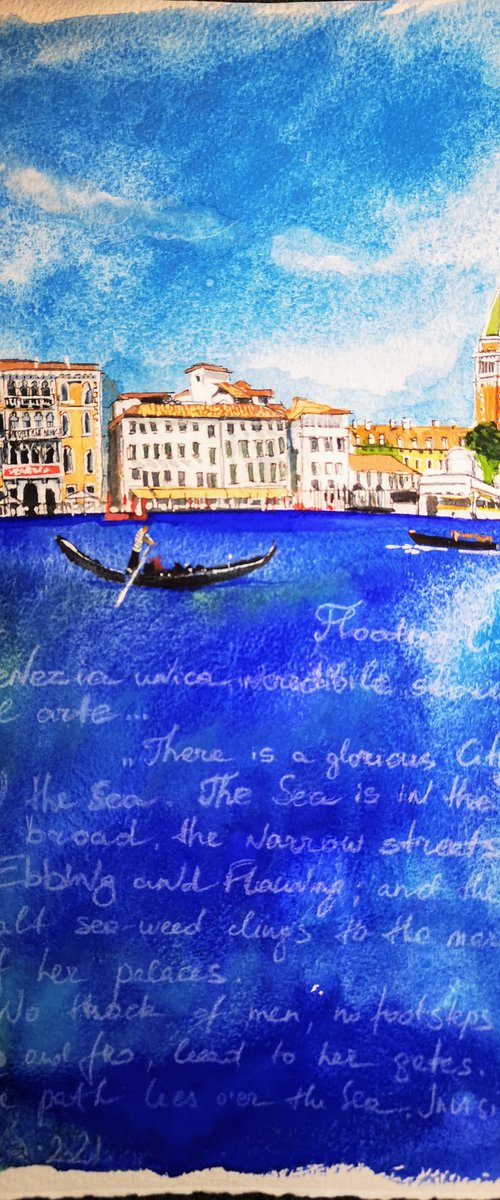 VENEZIA
Floating
eNezia unica, incredibile
e arte...
„There is a glorious Cit
the Sea. The Sea is in the
broad, the narrow streets
Ebbing and Flowing; and the
alt sea-weed clings to the mar
f her palaces.
No track of men, no footsteps
o and fro, lead to her gates.
e path lies o'er the Sea.